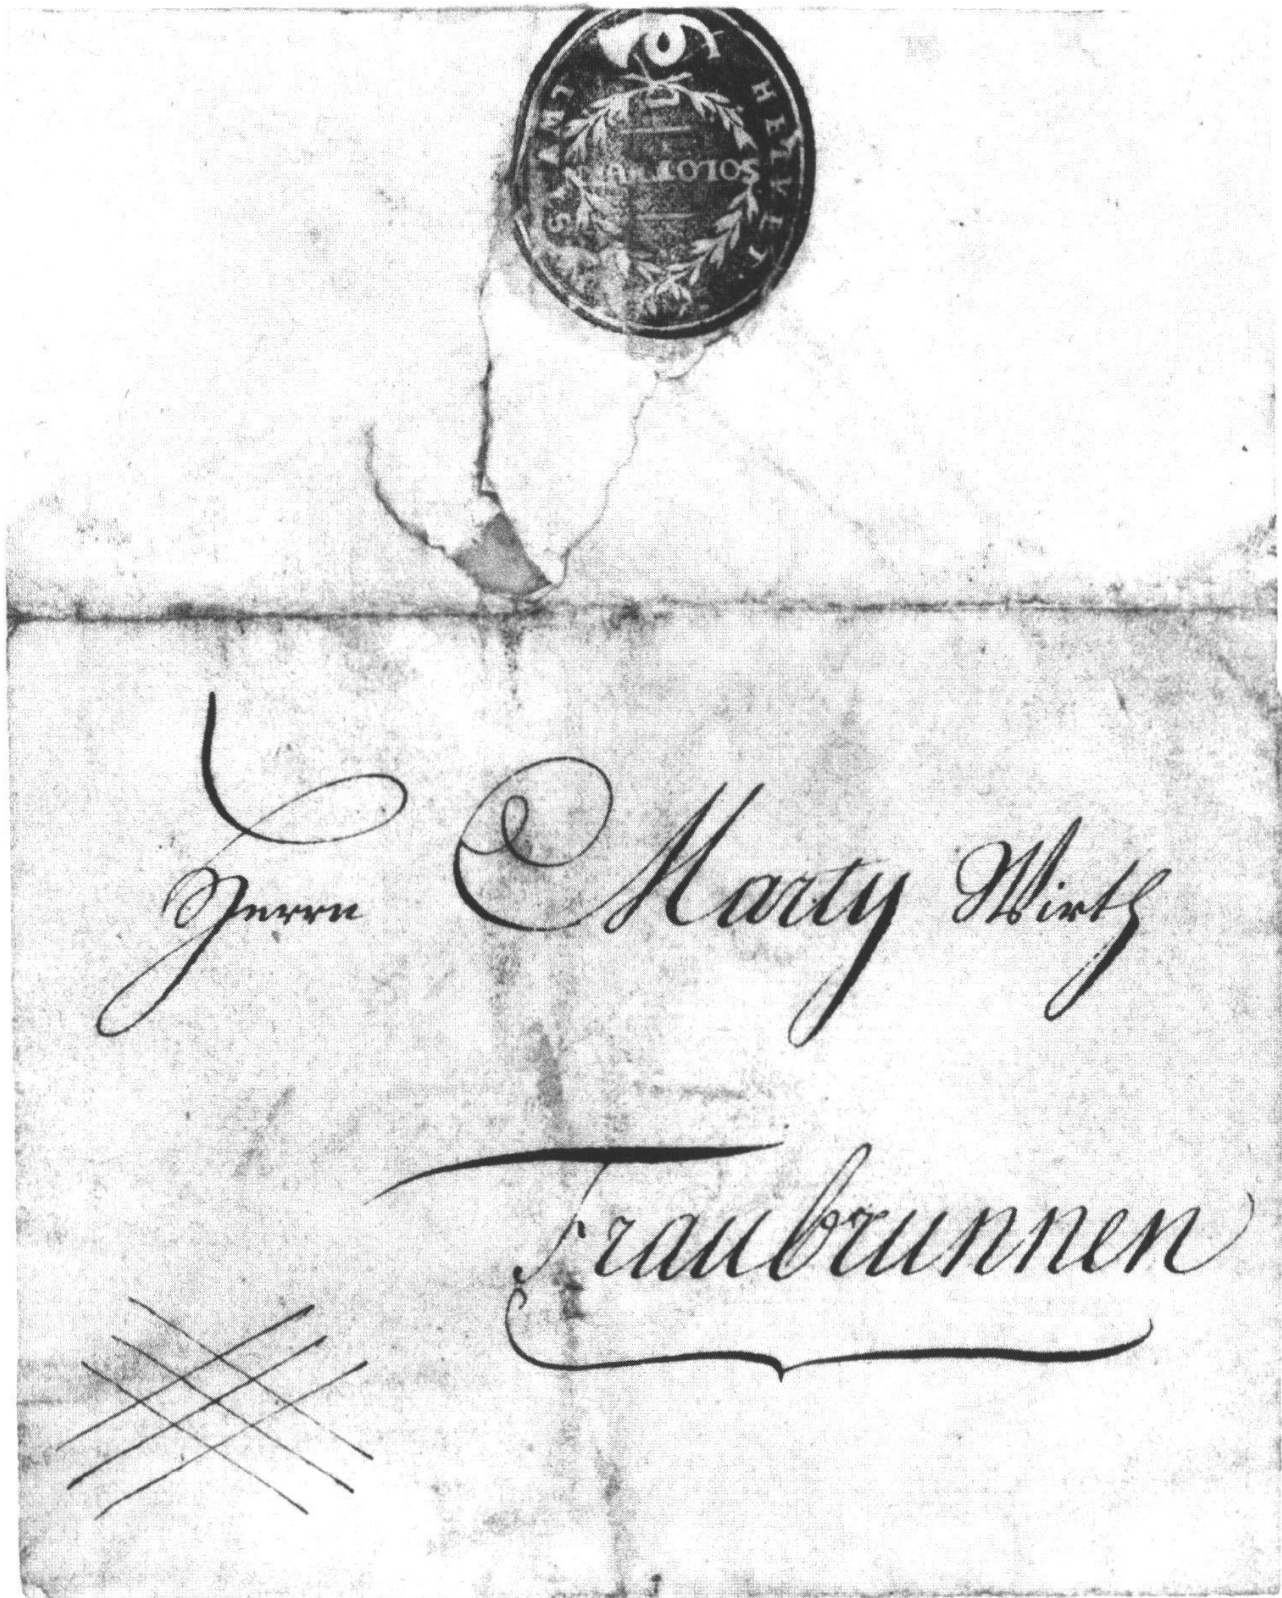 HELVET.
SOLOTHURN
Herrn Marty Wirth
Fraubrunnen